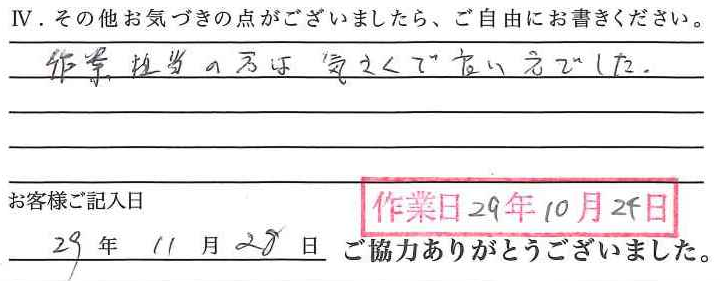 Ⅳ．その他お気づきの点がございましたら、ご自由にお書きください。
作業担当の方は気さくで良い方でした.
お客様ご記入日
作業日29年10月24日
29年11月28日
ご協力ありがとうございました。